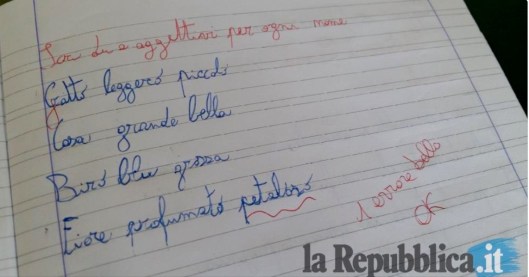 Scr due aggettivi per ogni nome
Gatto leggero piccolo
Casa grande bella
Biro blu grossa
Fiore profumato petaloso
1 errore bello
OK
la Repubblica.it